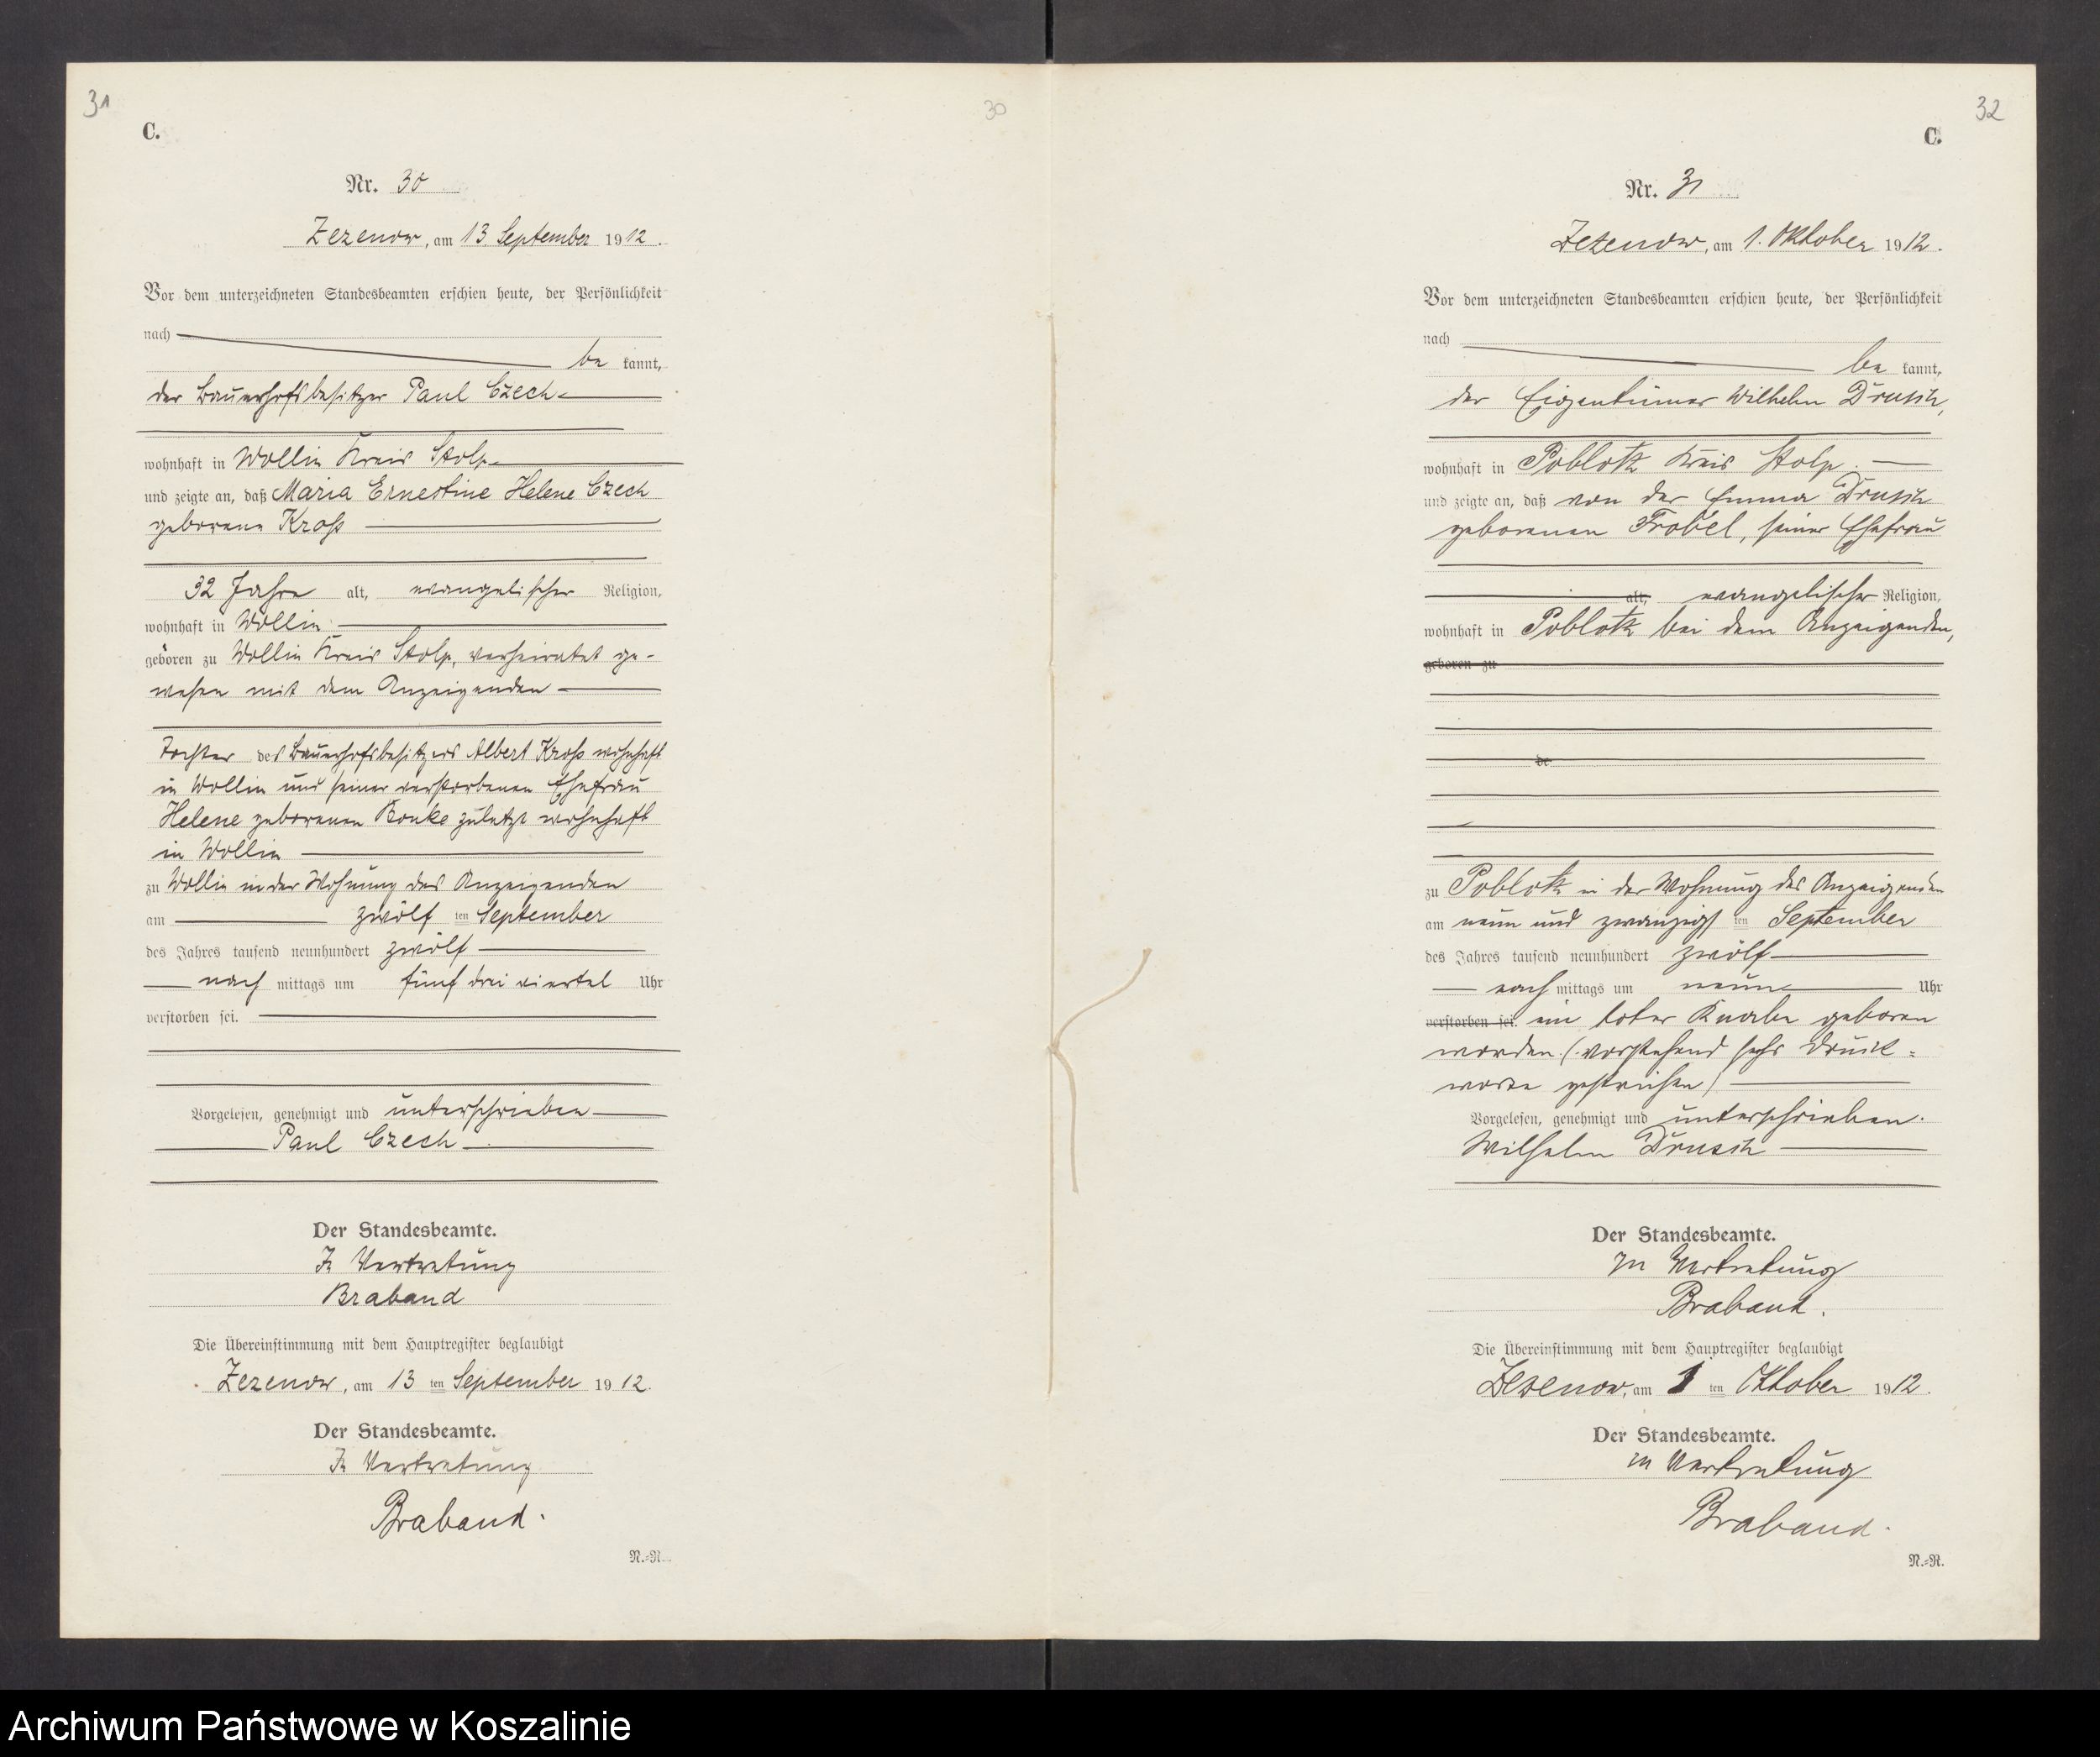 31
C.
30
Nr. 30
Zezenow, am 13 September 1912.
Vor dem unterzeichneten Standesbeamten erschien heute, der Persönlichkeit
nach
be kannt,
der Bauerhofsbesitzer Paul Czech
wohnhaft in Wollin Kreis Stolp
und zeigte an, daß Maria Ernestine Helene Czech
geborene Kroß
32 Jahre alt, evangelischer Religion,
wohnhaft in Wollin
geboren zu Wollin Kreis Stolp, verheiratet ge-
wesen mit dem Anzeigenden
Tochter des Bauerhofsbesitzers Albert Kroß wohnhaft
in Wollin und seiner verstorbenen Ehefrau
Helene geborenen Ronke zuletzt wohnhaft
in Wollin
zu Wollin in der Wohnung des Anzeigenden
am zwölf ten September
des Jahres tausend neunhundert zwölf
nach mittags um fünf drei viertel Uhr
verstorben sei.
Vorgelesen, genehmigt und unterschrieben
Paul Czech
Der Standesbeamte.
In Vertretung
Braband
Die Übereinstimmung mit dem Hauptregister beglaubigt
Zezenow, am 13 ten September 1912.
Der Standesbeamte.
In Vertretung
Braband.
N.=R.
32
C.
Nr. 31
Zezenow, am 1. Oktober 1912.
Vor dem unterzeichneten Standesbeamten erschien heute, der Persönlichkeit
nach
be kannt,
der Eigentümer Wilhelm Drusch,
wohnhaft in Poblotz Kreis Stolp.
und zeigte an, daß von der Emma Drusch
geborenen Trobel, seiner Ehefrau
alt, evangelischer Religion,
wohnhaft in Poblotz bei dem Anzeigenden,
geboren zu
de
zu Poblotz in der Wohnung des Anzeigenden
am neun und zwanzigs ten September
des Jahres tausend neunhundert zwölf
nach mittags um neun Uhr
verstorben sei. ein toter Knabe geboren
worden. (vorstehend sechs Druck=
worte gestrichen)
Vorgelesen, genehmigt und unterschrieben.
Wilhelm Drusch
Der Standesbeamte.
In Vertretung
Braband.
Die Übereinstimmung mit dem Hauptregister beglaubigt
Zezenow, am 1 ten Oktober 1912.
Der Standesbeamte.
in Vertretung
Braband.
N.=R.
Archiwum Państwowe w Koszalinie